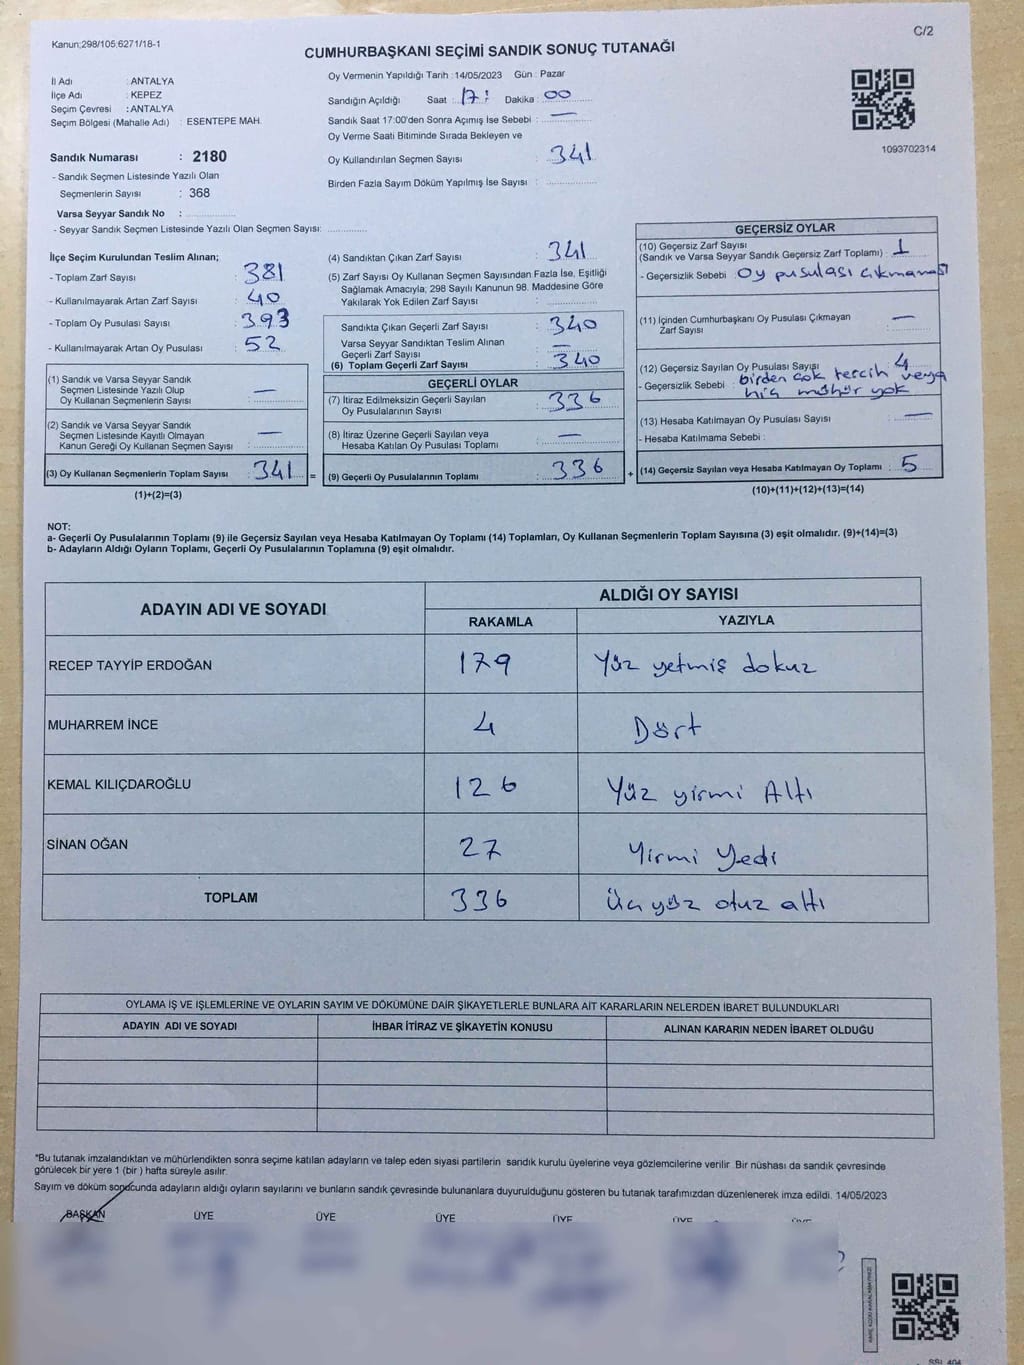 Kanun:298/105;6271/18-1
C/2
CUMHURBAŞKANI SEÇİMİ SANDIK SONUÇ TUTANAĞI
İl Adı : ANTALYA
İlçe Adı : KEPEZ
Seçim Çevresi : ANTALYA
Seçim Bölgesi (Mahalle Adı) : ESENTEPE MAH.
Oy Vermenin Yapıldığı Tarih : 14/05/2023 Gün : Pazar
Sandığın Açıldığı Saat : 17: Dakika : 00
Sandık Saat 17:00'den Sonra Açımış İse Sebebi : —
Oy Verme Saati Bitiminde Sırada Bekleyen ve
Oy Kullandırılan Seçmen Sayısı : 341
Birden Fazla Sayım Döküm Yapılmış İse Sayısı :
1093702314
Sandık Numarası : 2180
- Sandık Seçmen Listesinde Yazılı Olan
Seçmenlerin Sayısı : 368
Varsa Seyyar Sandık No :
- Seyyar Sandık Seçmen Listesinde Yazılı Olan Seçmen Sayısı:
İlçe Seçim Kurulundan Teslim Alınan;
- Toplam Zarf Sayısı : 381
- Kullanılmayarak Artan Zarf Sayısı : 40
- Toplam Oy Pusulası Sayısı : 393
- Kullanılmayarak Artan Oy Pusulası : 52
(1) Sandık ve Varsa Seyyar Sandık
Seçmen Listesinde Yazılı Olup
Oy Kullanan Seçmenlerin Sayısı : —
(2) Sandık ve Varsa Seyyar Sandık
Seçmen Listesinde Kayıtlı Olmayan
Kanun Gereği Oy Kullanan Seçmen Sayısı : —
(3) Oy Kullanan Seçmenlerin Toplam Sayısı : 341 =
(1)+(2)=(3)
(4) Sandıktan Çıkan Zarf Sayısı : 341
(5) Zarf Sayısı Oy Kullanan Seçmen Sayısından Fazla İse, Eşitliği
Sağlamak Amacıyla; 298 Sayılı Kanunun 98. Maddesine Göre
Yakılarak Yok Edilen Zarf Sayısı :
Sandıkta Çıkan Geçerli Zarf Sayısı : 340
Varsa Seyyar Sandıktan Teslim Alınan
Geçerli Zarf Sayısı : —
(6) Toplam Geçerli Zarf Sayısı : 340
GEÇERLİ OYLAR
(7) İtiraz Edilmeksizin Geçerli Sayılan
Oy Pusulalarının Sayısı : 336
(8) İtiraz Üzerine Geçerli Sayılan veya
Hesaba Katılan Oy Pusulası Toplamı : —
(9) Geçerli Oy Pusulalarının Toplamı : 336 +
GEÇERSİZ OYLAR
(10) Geçersiz Zarf Sayısı
(Sandık ve Varsa Seyyar Sandık Geçersiz Zarf Toplamı) : 1
- Geçersizlik Sebebi : Oy pusulası çıkmaması
(11) İçinden Cumhurbaşkanı Oy Pusulası Çıkmayan
Zarf Sayısı : —
(12) Geçersiz Sayılan Oy Pusulası Sayısı : 4
- Geçersizlik Sebebi : birden çok tercih veya
hiç mühür yok
(13) Hesaba Katılmayan Oy Pusulası Sayısı : —
- Hesaba Katılmama Sebebi :
(14) Geçersiz Sayılan veya Hesaba Katılmayan Oy Toplamı : 5
(10)+(11)+(12)+(13)=(14)
NOT:
a- Geçerli Oy Pusulalarının Toplamı (9) ile Geçersiz Sayılan veya Hesaba Katılmayan Oy Toplamı (14) Toplamları, Oy Kullanan Seçmenlerin Toplam Sayısına (3) eşit olmalıdır. (9)+(14)=(3)
b- Adayların Aldığı Oyların Toplamı, Geçerli Oy Pusulalarının Toplamına (9) eşit olmalıdır.
ADAYIN ADI VE SOYADI ALDIĞI OY SAYISI
RAKAMLA YAZIYLA
RECEP TAYYİP ERDOĞAN 179 Yüz yetmiş dokuz
MUHARREM İNCE 4 Dört
KEMAL KILIÇDAROĞLU 126 Yüz yirmi Altı
SİNAN OĞAN 27 Yirmi Yedi
TOPLAM 336 Üçyüz otuz altı
OYLAMA İŞ VE İŞLEMLERİNE VE OYLARIN SAYIM VE DÖKÜMÜNE DAİR ŞİKAYETLERLE BUNLARA AİT KARARLARIN NELERDEN İBARET BULUNDUKLARI
ADAYIN ADI VE SOYADI İHBAR İTİRAZ VE ŞİKAYETİN KONUSU ALINAN KARARIN NEDEN İBARET OLDUĞU
*Bu tutanak imzalandıktan ve mühürlendikten sonra seçime katılan adayların ve talep eden siyasi partilerin sandık kurulu üyelerine veya gözlemcilerine verilir. Bir nüshası da sandık çevresinde
görülecek bir yere 1 (bir ) hafta süreyle asılır.
Sayım ve döküm sonucunda adayların aldığı oyların sayılarını ve bunların sandık çevresinde bulunanlara duyurulduğunu gösteren bu tutanak tarafımızdan düzenlenerek imza edildi. 14/05/2023
BAŞKAN ÜYE ÜYE ÜYE ÜYE ÜYE ÜYE